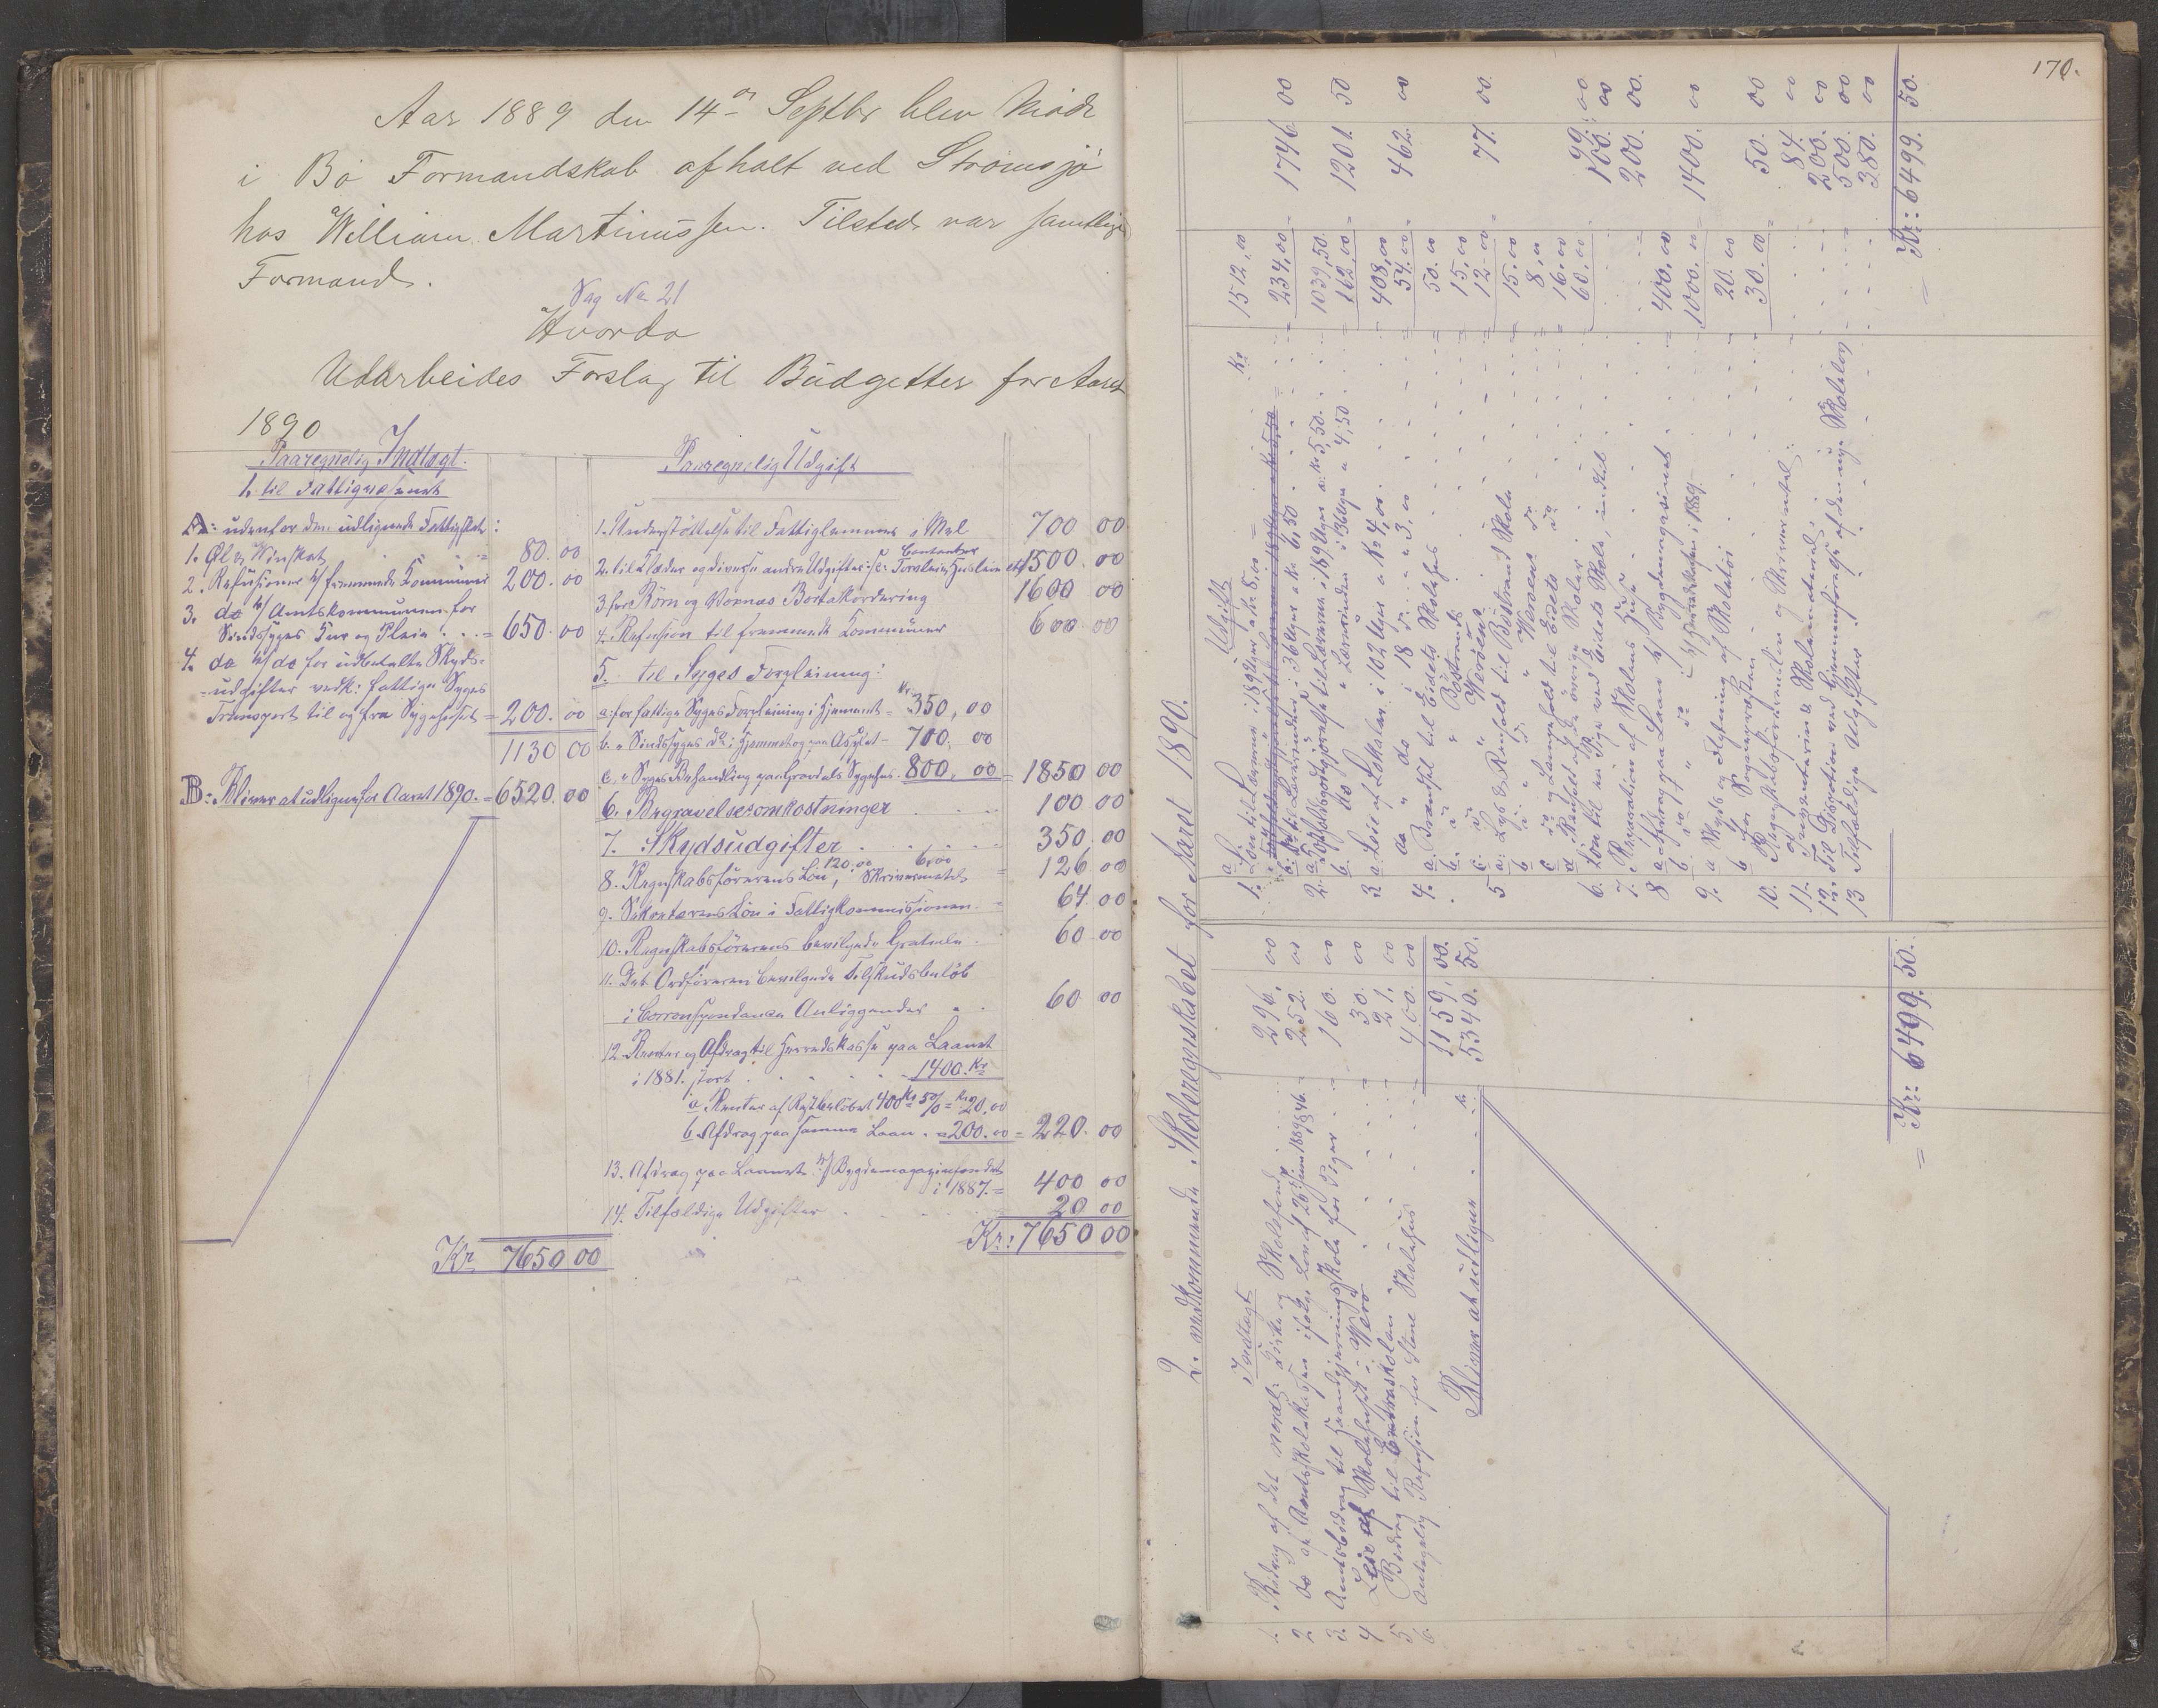 Aar 1889 den 14de Septbr blev Møde
i Bø Formandskab afholt ved Strømsjø
hos William Martinussen. Tilsted var samtlige
Formænd.
Sag No 21
Hvorda
Udarbeides Forslag til Büdgetter for Aaret
1890
Paaregnelig Indtægt.
1. til Fattigvæsenet
A: udenfor den udlignede Fattigskat:
1. Øl & Vinskat = 80.00
2. Refusioner h/ fremmede Kommuner 200.00
3. do h/ Amtskommunen for
Sindssyges Kur og Pleie = 650.00
4. do h/ do for udbetalte Skyds-
udgifter vedk: fattige Syges
Transport til og fra Sygehuset = 200.00
1130 00
B: Bliver at udligne for Aaret 1890. = 6520.00
Kr 7650 00
Paaregnelig Udgift
1. Understøttelse til Fattiglemmer i Mel 700 00
2. til Klæder og diverse andre Udgifter 1500.00
3. for Børn og Voxnes Bortakkordering 1600 00
4. Refusion til fremmede Kommuner 600 00
5. til Syges Forpleining:
a: for fattige Syges Forpleining i Hjemmet = Kr 350,00
b. " Sindssyges do i Hjemmet og paa Asylet - 700,00
c. " Syges Behandling paa Gravdals Sygehus. 800,00 = 1850 00
6. Begravelsesomkostninger 100 00
7. Skydsudgifter 350,00
8. Regnskabsførerens Løn 120.00, Skrivermateds 6,00 = 126,00
9. Sekretærens Løn i Fattigkommissionen = 64.00
10. Regnskabsførerens bevilgede Gratiale 60 00
11. Det Ordføreren bevilgede Tilskudsbeløb
i Correspondance Anliggender 60 00
12. Renter og Afdrag til Herredskassen paa Laanet
i 1881. stort 1400. Kr
a Renter af Restbeløbet 400 Kr 5% = Kr 20.00
b Afdrag paa samme Laan = 200.00 = 220.00
13. Afdrag paa Laanet h/ Bygdemagazinfondet
i 1887. = 400 00
14. Tilfældige Udgifter 20 00
Kr: 7650 00
170.
2. vedkommende Skoleregnskabet for Aaret 1890.
Indtægt
1. Bidrag af det nordl: Kirke og Skolefond 296,00
2. do af Amtsskolekassen ifølge Lov af 26 Juni 1889 § 46 = 252.00
3. Amtsbidrag til Haandgjerningsskole for Piger 160.00
4. Leie af Skolehuset i Verø 30.00
5. Bidrag til Extraskolen 21,00
6. Antagelig Refusion for Stene Skolehus 400.00
1159,00.
Bliver at udligne Kr 5340.50.
= Kr: 6499.50.
Udgift
1. a Løn til Lærerne i 189 Uger a Kr 8,00 = Kr 1512,00
b. do til Lærerinden i 36 Uger a Kr 6,50 = 234,00 = 1746 00
2. a Kostholdsgodtgjørelse til Lærerne i 189 Uger a Kr 5,50. 1039,50.
b. do " Lærerinden i 36 Uger a 4,50. = 162,00 = 1201. 50
3. a Leie af Lokaler i 102 Uger a Kr 4,00 408,00
do " do i 18 do " 3,00 = 54.00 = 462. 00
4. a. Brændsel til Eidets Skolehus 50.00
b. do " Bøstrands 15.00
c. do " Verøens 12.00 = 77. 00
5 a. Lys & Renhold til Bøstrand Skole 15.00
b do " Verøens do 8,00
c do og Lampehold til Eidets do 16.00
d. Renhold af de øvrige Skoler 60.00 99. 00
6. Løn til en Pige ved Eidets Skole, indtil 100. 00
7. Reparation af Skolens Huse 200. 00.
8 a Afdrag paa Laan h/ Bygdemagasinet = 400.00
b do " do h/ Sparebanken i 1889. 1000.00 = 1400. 00
9. a Skyds og Flytning af Skoletøi 20.00
b for Sognepresten 30.00 = 50. 00
10. Regnskabsførerens og Skrivermateds: 84. 00
11. Inventar & Skolemateriel 200. 00
12. Til Disposition ved Gjennemførelse af den nye Skolelov 500. 00
13 Tilfældige Udgifter 380. 00
= Kr: 6499. 50.